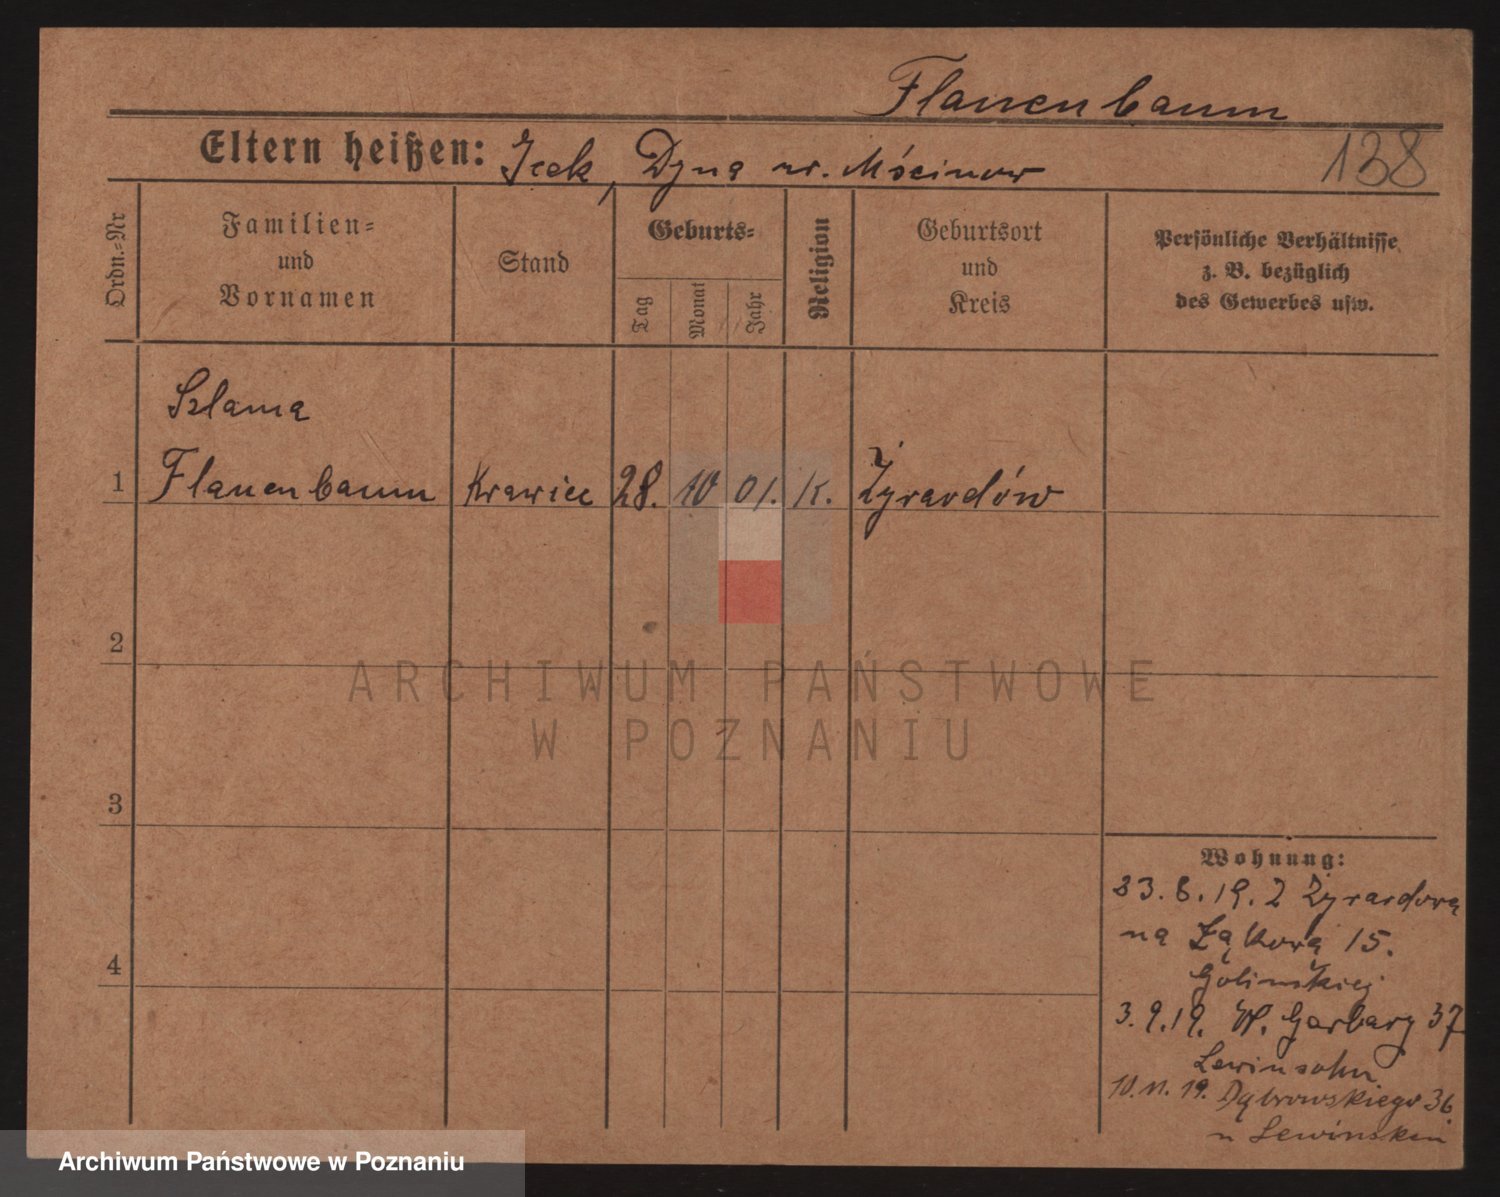 Flauenbaum
Eltern heißen: Icek, Dyna ur. Mścinow
138
Ordn.-Nr
Familien-
und
Vornamen
Stand
Geburts-
Tag
Monat
Jahr
Religion
Geburtsort
und
Kreis
Persönliche Verhältnisse
z. B. bezüglich
des Gewerbes usw.
Szlama
1 Flauenbaum Krawiec 28. 10 01. K. Żyrardów
2
ARCHIWUM PAŃSTWOWE
W POZNANIU
3
4
Wohnung:
23.8.19. Z Żyrardowa
na Łąkową 15.
Golinskiej
3.9.19. W. Garbary 37
Lewinsohn
10.11.19. Dąbrowskiego 36
u Lewinskiu
Archiwum Państwowe w Poznaniu